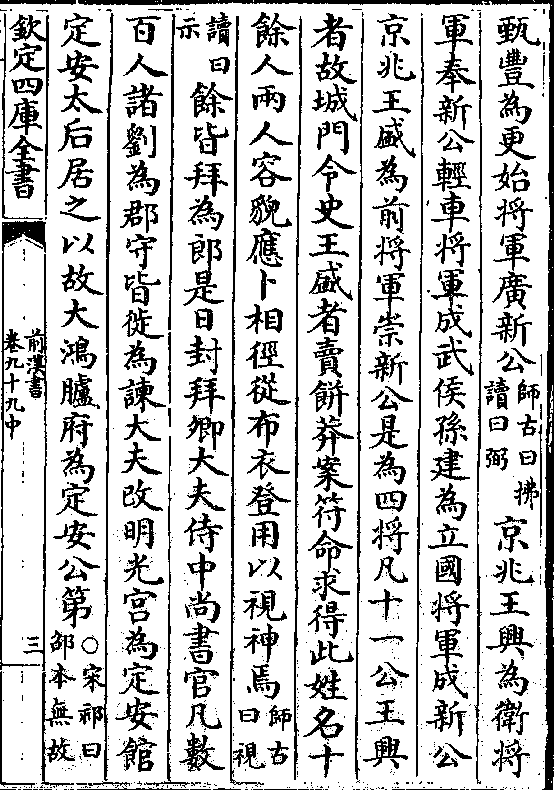 甄豐為更始將軍廣新公師古曰拂讀曰弼京兆王興為衛將
軍奉新公輕車將軍成武侯孫建為立國將軍成新公
京兆王盛為前將軍崇新公是為四將凡十一公王興
者故城門令史王盛者賣餅莽案符命求得此姓名十
餘人兩人容貌應卜相徑從布衣登用以視神焉師古曰視
讀曰示餘皆拜為郎是日封拜卿大夫侍中尚書官凡數
百人諸劉為郡守皆徙為諫大夫改明光宮為定安館
定安太后居之以故大鴻臚府為定安公第○宋祁曰邵本無故
欽定四庫全書
前漢書
卷九十九中
三